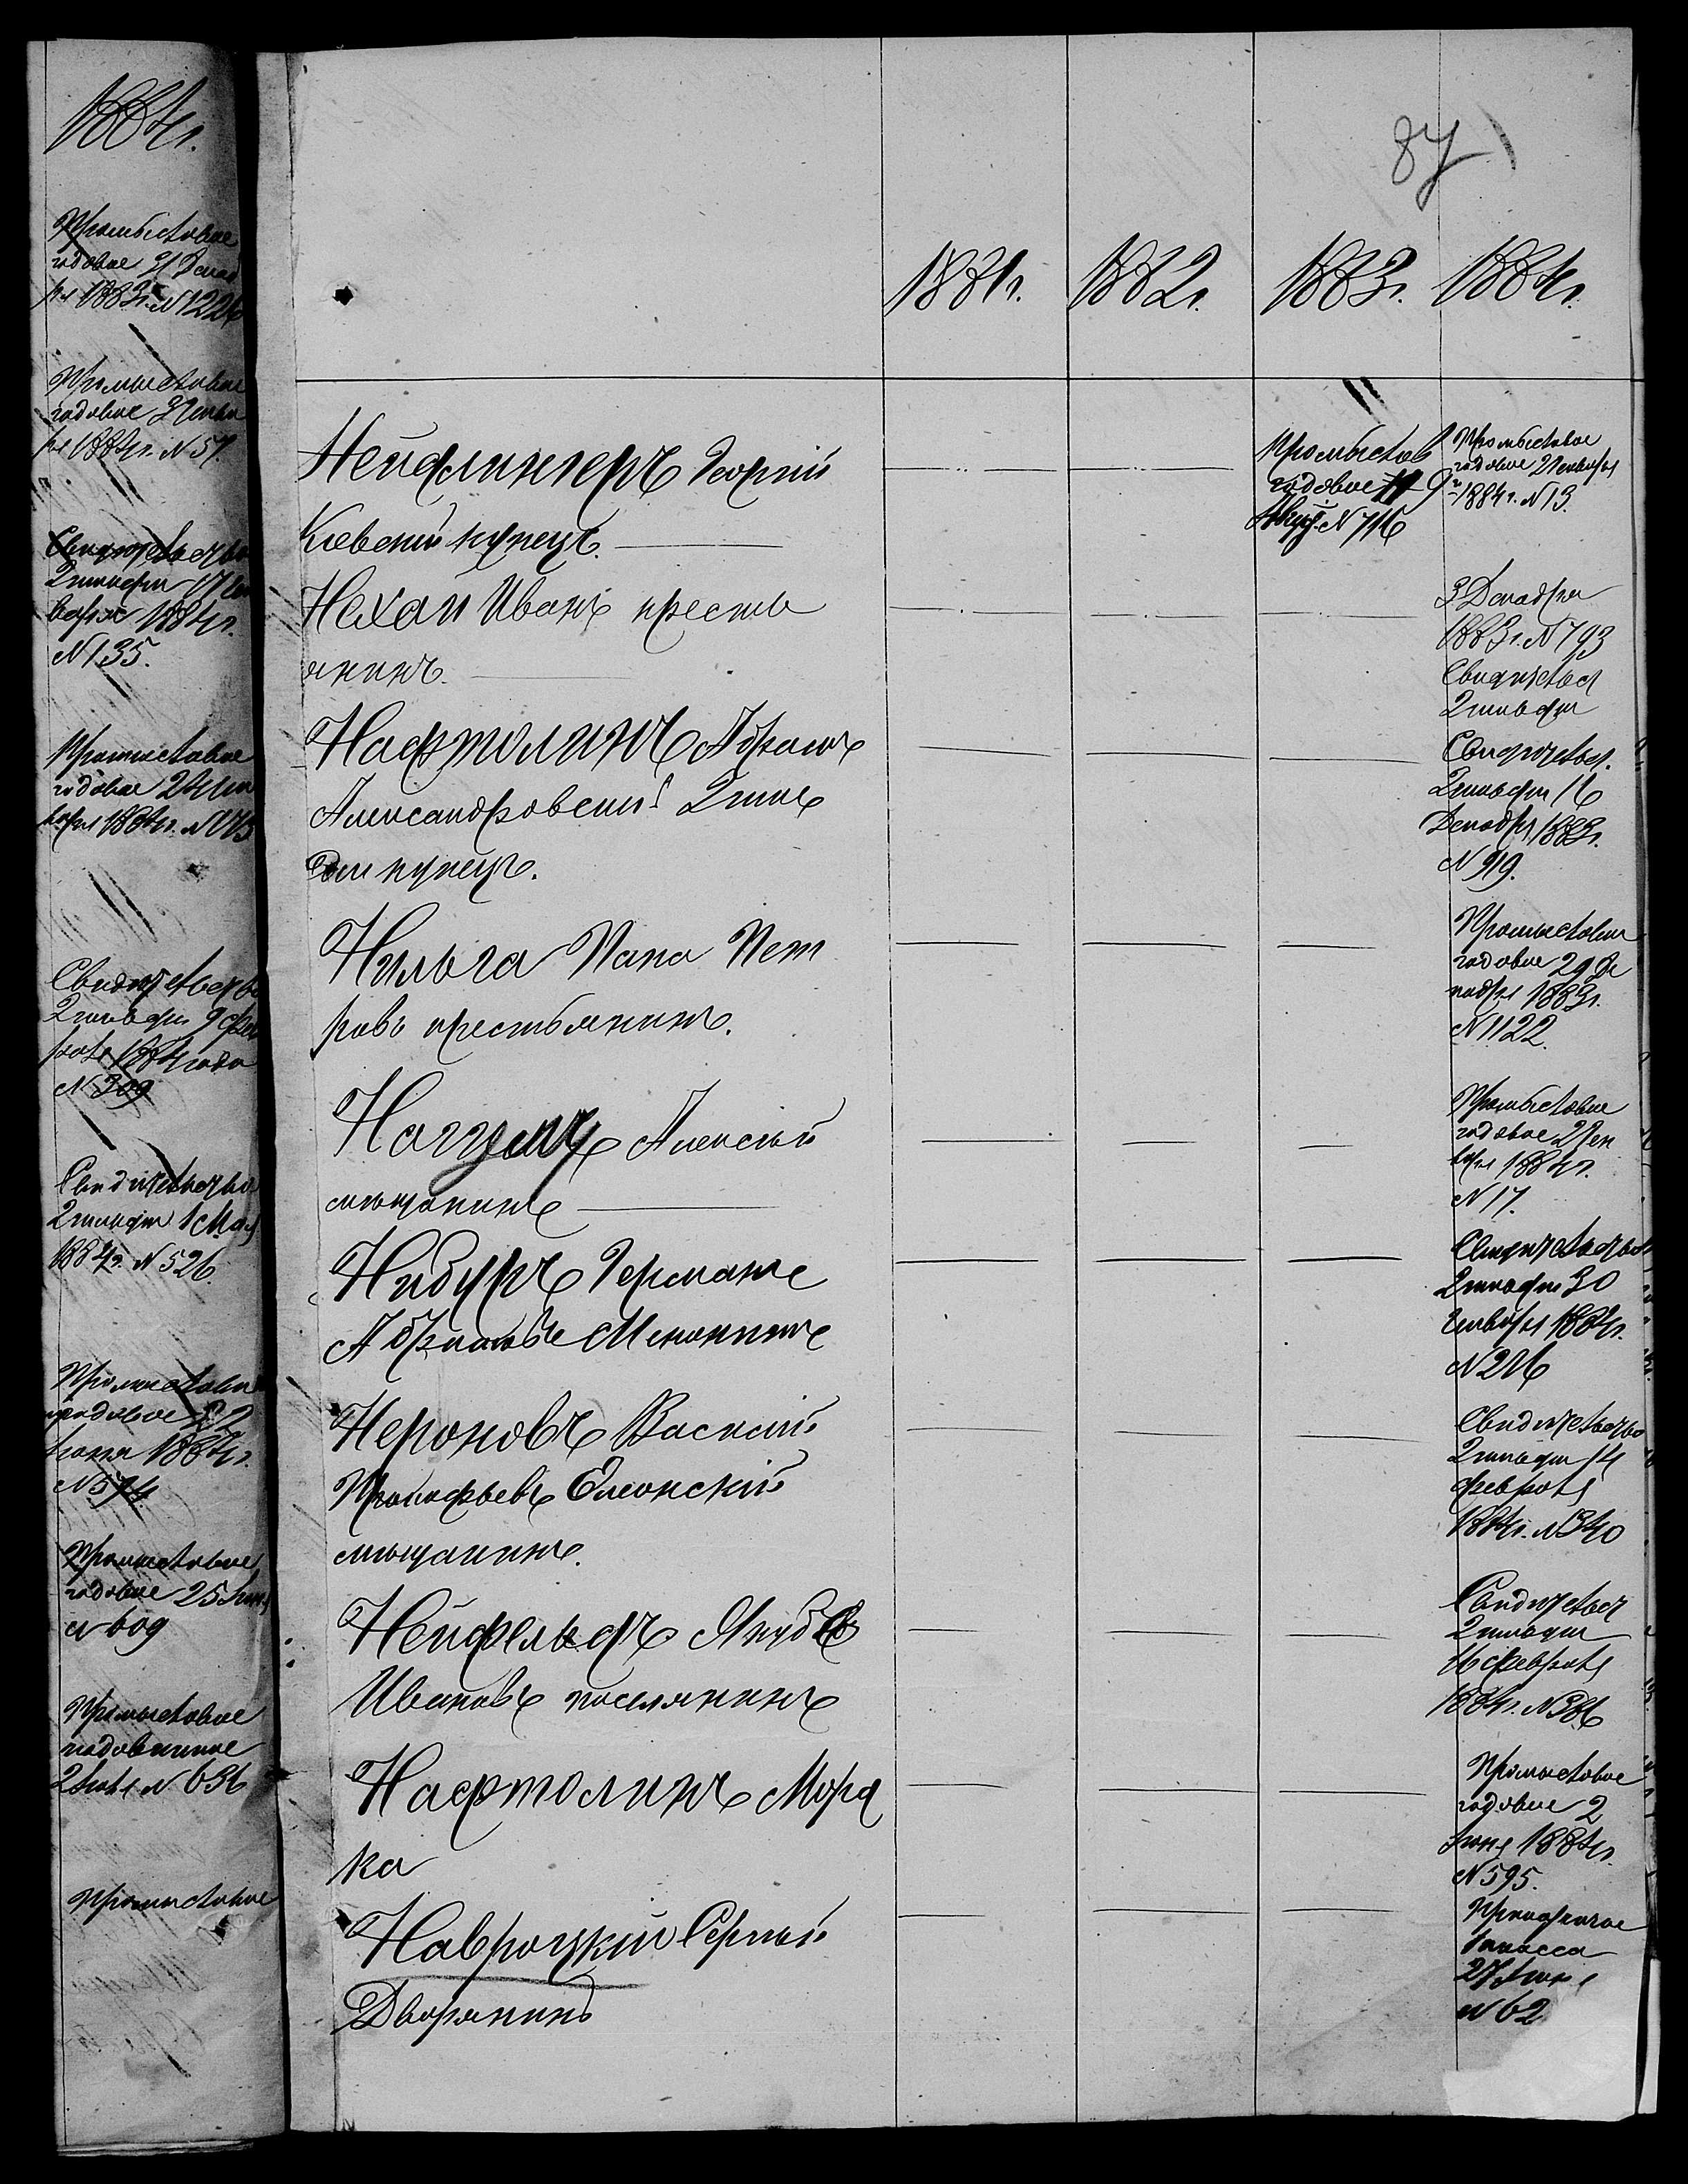 1884г.
Промысловое
годовое 31 Декаб
ря 1883г. N 1226
Промысловое
годовое 3 Янва
ря 1884г. N 57.
Свидѣтельство
2 гильдіи 17 Ян
варя 1884г.
N 135.
Промысловое
годовое 24 Ян
варя 1884г. N 175
Свидѣтельство
2 гильдіи 9 Фев
раля 1884 года
N 309
Свидѣтельство
2 гильдіи 1 Мая
1884г. N 526.
Промысловое
годовое
Іюня 1884г.
N 574
Промысловое
годовое 25 Іюня
N 609
Промысловое
2 Іюля N 636
Промысловое
87
1881г. 1882г. 1883г. 1884г.
Нейфлингеръ Георгій
Кіевскій купецъ.
Промыслов
годовое 9
Авгус. N 716
Промысловое
годовое 2 Января
1884г. N 13.
Нехай Иванъ кресть
янинъ.
3 Декабря
1883г. N 793
Свидѣтельс
2 гильдіи
Нафтолинъ Абрамъ
Александровскій 2 гиль
діи купецъ.
Свидѣтельс.
2 гильдіи 16
Декабр 1883г.
N 919.
Нильга Пана Пет
ровъ крестьянинъ.
Промысловое
годовое 29 Де
кабря 1883г.
N 1122.
Алексѣй
мѣщанинъ
Промысловое
годовое 2 Ян
варя 1884г.
N 17.
Нибуръ Германъ
Абрамовъ Менонитъ
Свидѣтельство
2 гильдіи 30
Января 1884г.
N 216
Нероновъ Василій
Прокофьевъ Елеонскій
мѣщанинъ.
Свидѣтельство
2 гильдіи 14
февраля
1884г. N 340
Нейфельдъ Якубъ
Ивановъ поселянинъ
Свидѣтельс
2 гильдіи
16 февраля
1884г. N 386
Нафтолинъ Морд
ка
Промысловое
годовое 2
Іюня 1884г.
N 595.
Навроцкій Сергѣй
Дворянинъ
Прикащичье
1 класса
27 Іюня
N 62